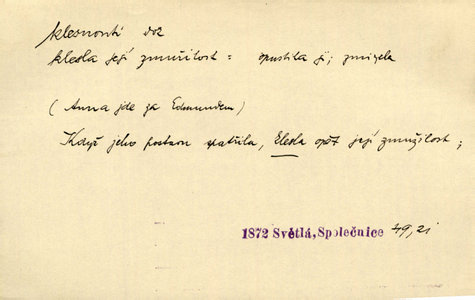 klesnouti dok
klesla její zmužilost = opustila ji; zmizela
(Anna jde za Edmundem)
Když jeho postavu spatřila, klesla opět její zmužilost;
1872 Světlá, Společnice 49, 21